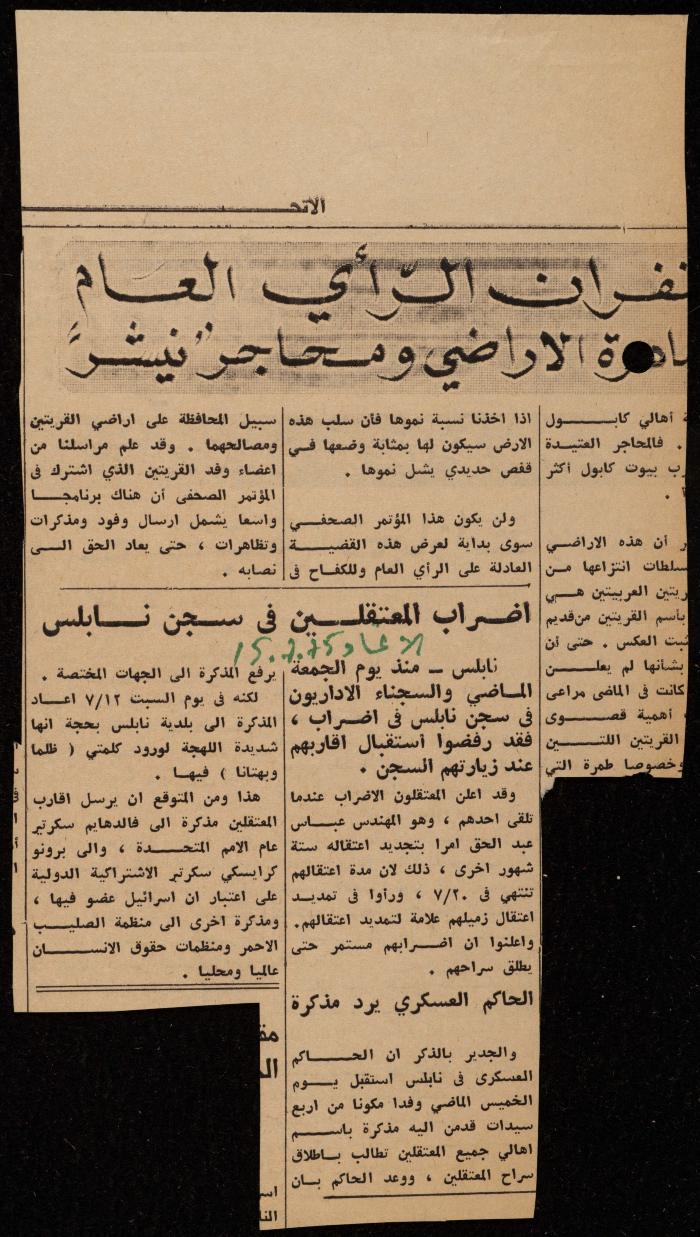 الاتحـ
ـنفـران الـرّأي العـام
الاراضي ومـحـاجر "نيشر"
أهالي كابـــــول
. فالمحاجر العتيـدة
بيوت كابول أكثر
.
أن هذه الاراضـي
ـسلطات انتزاعها مـن
ـريتين العربيتين هــي
بأسم القريتين من‌قديم
ـثبت العكس . حتى أن
بشأنها لم يعلــــن
كانت فى الماضى مراعى
أهمية قصــــوى
القريتين اللتــــين
وخصوصا طمرة التي
اذا اخذنا نسبة نموها فأن سلب هذه
الارض سيكون لها بمثابة وضعها فــي
قفص حديدي يشل نموها .
ولن يكون هذا المؤتمر الصحفــي
سوى بداية لعرض هذه القضيـــة
العادلة على الرأي العام وللكفاح فى
سبيل المحافظة على اراضي القريتين
ومصالحهما . وقد علم مراسلنا من
اعضاء وفد القريتين الذي اشترك فى
المؤتمر الصحفى أن هناك برنامجــا
واسعا يشمل ارسال وفود ومذكرات
وتظاهرات ، حتى يعاد الحق الــى
نصابه .
اضراب المعتقلـــين فى سـجن نــابلس
الاتحاد 15.7.75
نابلس ــ منذ يوم الجمعة
المـاضي والسجناء الاداريون
فى سجن نابلس فى اضـراب ،
فقد رفضوا استقبال اقاربهم
عند زيارتهم السجن .
وقد اعلن المعتقلون الاضراب عندما
تلقى احدهم ، وهو المهندس عبــاس
عبد الحق امرا بتجديد اعتقاله ستة
شهور اخرى ، ذلك لان مدة اعتقالهم
تنتهي فى ٧/٢٠ ، ورأوا فى تمديــد
اعتقال زميلهم علامة لتمديد اعتقالهم.
واعلنوا ان اضـرابهم مستمر حتى
يطلق سراحهم .
الحاكم العسكري يرد مذكرة
والجدير بالذكر ان الحـــــاكم
العسكرى فى نابلس استقبل يـــوم
الخميس الماضي وفدا مكونا من اربع
سيدات قدمن اليه مذكرة باســــم
اهالي جميع المعتقلين تطالب بـاطلاق
سراح المعتقلين ، ووعد الحاكم بـان
يرفع المذكرة الى الجهات المختصة .
لكنه فى يوم السبت ٧/١٢ اعــاد
المذكرة الى بلدية نابلس بحجة انها
شديدة اللهجة لورود كلمتي ( ظلما
وبهتانا ) فيهـا .
هذا ومن المتوقع ان يرسل اقارب
المعتقلين مذكرة الى فالدهايم سكرتير
عام الامم المتحــدة ، والى برونو
كرايسكي سكرتير الاشتراكية الدولية
على اعتبار ان اسرائيل عضو فيها ،
ومذكرة اخرى الى منظمة الصليــب
الاحمر ومنظمات حقوق الانســـان
عالميا ومحليا .